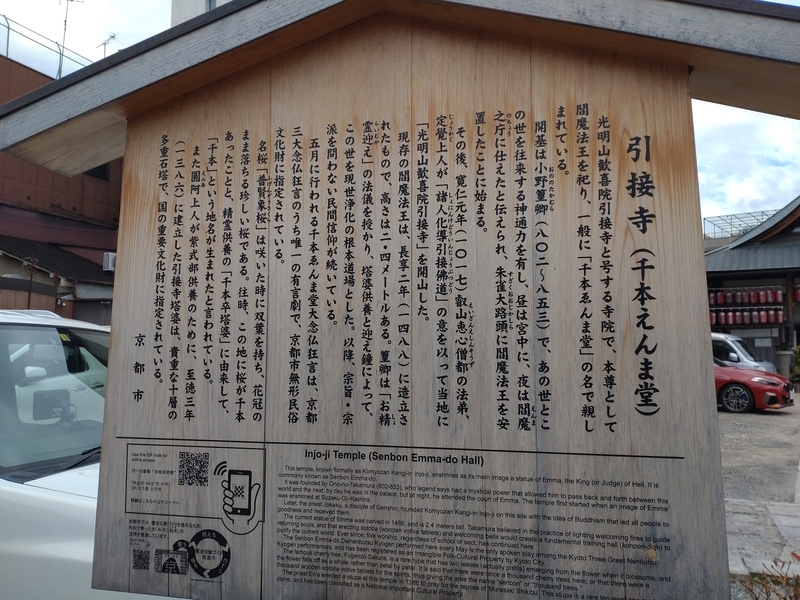 引接寺(千本えんま堂)
光明山歓喜院引接寺と号する寺院で、本尊として
閻魔法王を祀り、一般に「千本ゑんま堂」の名で親し
まれている。
開基は小野篁卿(八〇二~八五三)で、あの世とこ
の世を往来する神通力を有し、昼は宮中に、夜は閻魔
之庁に仕えたと伝えられ、朱雀大路頭に閻魔法王を安
置したことに始まる。
その後、寛仁元年(一〇一七)叡山恵心僧都の法弟、
定覚上人が「諸人化導引接佛道」の意を以って当地に
「光明山歓喜院引接寺」を開山した。
現存の閻魔法王は、長享二年(一四八八)に造立さ
れたもので、高さは二・四メートルある。篁卿は「お精
霊迎え」の法儀を授かり、塔婆供養と迎え鐘によって、
この世を現世浄化の根本道場とした。以降、宗旨・宗
派を問わない民間信仰が続いている。
五月に行われる千本ゑんま堂大念仏狂言は、京都
三大念仏狂言のうち唯一の有言劇で、京都市無形民俗
文化財に指定されている。
名桜「普賢象桜」は咲いた時に双葉を持ち、花冠の
まま落ちる珍しい桜である。往時、この地に桜が千本
あったことと、精霊供養の「千本卒塔婆」に由来して、
「千本」という地名が生まれたと言われている。
また圓阿上人が紫式部供養のために、至徳三年
(一三八六)に建立した引接寺塔婆は、貴重な十層の
多重石塔で、国の重要文化財に指定されている。
京都市
Injo-ji Temple (Senbon Emma-do Hall)
This temple, known formally as Komyozan Kangi-in Injo-ji, enshrines as its main image a statue of Emma, the King (or Judge) of Hell. It is
commonly known as Senbon Emma-do.
It was founded by Ono-no-Takamura (802-853), who legend says had a mystical power that allowed him to pass back and forth between this
world and the next; by day he was in the palace, but at night, he attended the court of Emma. The temple first started when an image of Emma
was enshrined at Suzaku Oji-Kashira.
Later, the priest Jokaku, a disciple of Genshin, founded Komyozan Kangi-in Injo-ji on this site with the idea of Buddhism that led all people to
goodness and received them.
The current statue of Emma was carved in 1488, and is 2.4 meters tall. Takamura believed in the practice of lighting welcoming fires to guide
returning souls, and that erecting sotoba (wooden votive tablets) and welcoming bells would create a fundamental training hall (konpon-dojo) to
purify the current world. Ever since, folk worship, regardless of school or sect, has continued here.
The Senbon Emma-do Dainenbutsu Kyogen performed here every May is the only spoken play among the Kyoto Three Great Nenbutsu
Kyogen performances, and has been registered as an Intangible Folk-Cultural Property by Kyoto City.
The famous cherry tree, Fugenzo Sakura, is a rare type that has two leaves (actually pistils) emerging from the flower when it blossoms, and
the flower falls off as a whole rather than petal by petal. It is said that there were once a thousand cherry trees here, or that there were a
thousand wooden sotoba votive tablets for the spirits, thus giving the area the name "senbon" or "thousand trees."
The priest En'a erected a stupa at this temple in 1386 to pray for the repose of Murasaki Shikibu. This stupa is a rare ten-level
stone, and has been classified as a National Important Cultural Property.
Use this QR code for
online access.